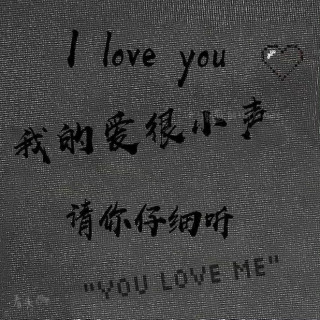 I love you
我的爱很小声
请你仔细听
"YOU LOVE ME"